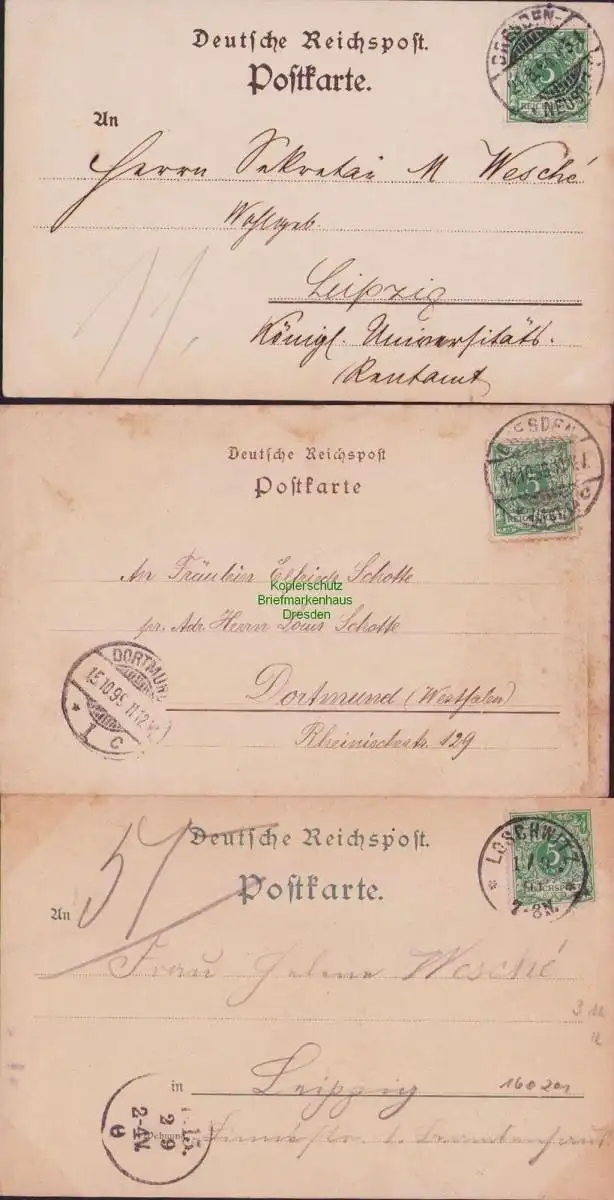 Deutsche Reichspost.
Postkarte.
DRESDEN-
NEUST
5
REICHSPOST
An
Herrn Sekretär M Wesché
Wohlgeb.
Leipzig
Königl. Universitäts-
Rentamt
Deutsche Reichspost
Postkarte
DRESDEN
14.10.
5
REICHSPOST
An Fräulein Elfriede Schotte
Kopierschutz
Briefmarkenhaus
Dresden
pr. Adr. Herrn Louis Schotte
DORTMUND
15.10.99 11-12
* 1 c
Dortmund (Westfalen)
Rheinischestr. 129
Deutsche Reichspost.
Postkarte.
LOSCHWITZ
5
REICHSPOST
7-8N.
An
Frau Helene Wesché
3
in Leipzig
160201
2 9
2-4N.
Wohnung